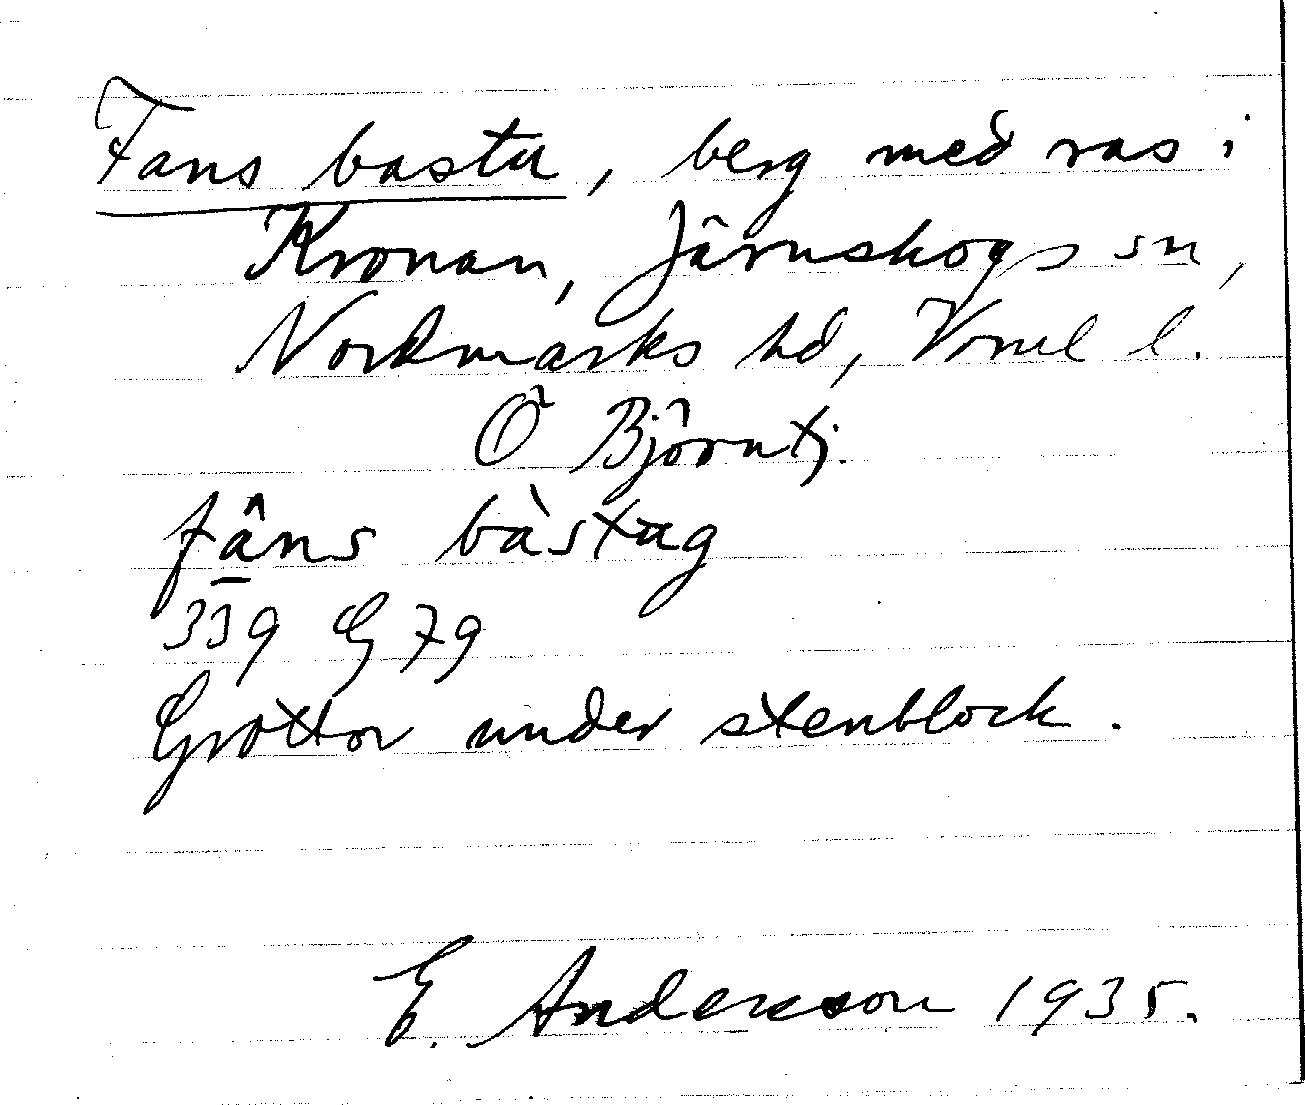 Fans bastu, berg med ras i
Kronan, Järnskogs sn,
Nordmarks hd, Vrml l.
Ö Björntj.
fâ̱ns bàstug
339 G 79
Grottor under stenblock.
G. Andersson 1935.